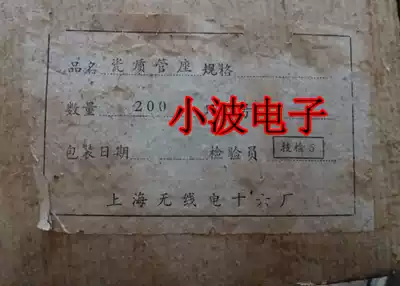 品名 瓷质管座 规格
数量 200
小波电子
包装日期 检验员 技检5
上海无线电十六厂